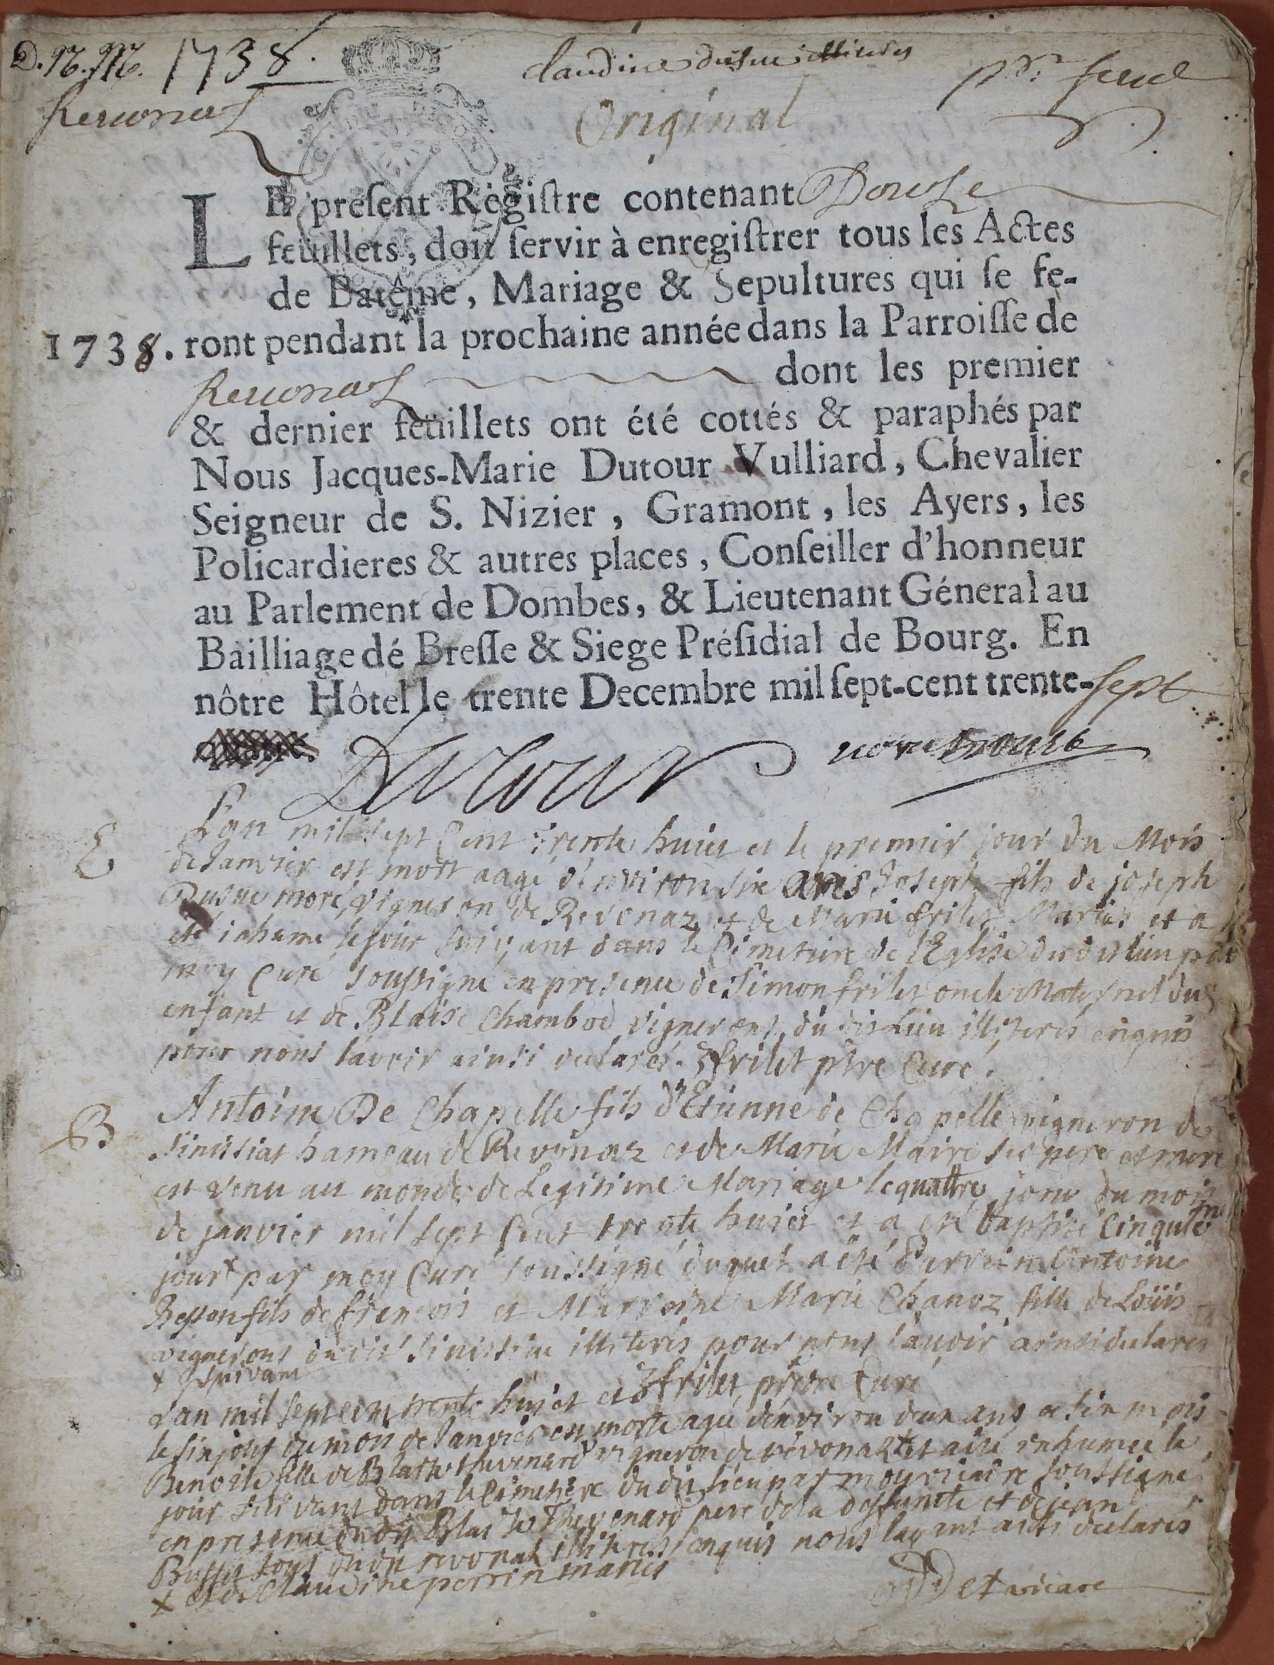 1738.
Revonaz
Original
LE present Registre contenant Douze
feuillets, doit servir à enregistrer tous les Actes
de Batême, Mariage & Sepultures qui se fe-
1738. ront pendant la prochaine année dans la Parroisse de
Revonaz dont les premier
& dernier feuillets ont été cottés & paraphés par
Nous Jacques-Marie Dutour Vulliard, Chevalier
Seigneur de S. Nizier, Gramont, les Ayers, les
Policardieres & autres places, Conseiller d'honneur
au Parlement de Dombes, & Lieutenant Géneral au
Bailliage dé Bresse & Siege Présidial de Bourg. En
nôtre Hôtel le trente Decembre mil sept-cent trente-sept
Dutour
E
L'an mil sept cent trente huict et le premier jour du Mois
de Janvier est mort aagé d'environ six ans Joseph fils de joseph
vigneron de Revonaz et de Marie frilet Mariés et a
été inhumé le jour suivant dans le Cimetiere de l'Eglise du dit lieu par
moy Curé soussigné en presence de Simon frilet oncle Maternel du
enfant et de Blaise Chambod vignerons du dit Lieu illiterés enquis
pour nous l'avoir ainsi declarés. frilet ptre Curé.
B
Antoine De Chapelle fils d'Etienne de Chapelle vigneron de
Sinissiat hameau de Revonaz et de Marie Maire ses pere et mere
est venu au monde de Legitime Mariage le quattre jour du mois
de janvier mil sept cent trente huict et a été baptisé Cinquieme
jour x par moy Curé soussigné duquel a été Parrein Antoine
Besson fils de francois et Marreine Marie Chanoz fille de Loüis
vignerons dudit illiterés pour nous l'avoir ainsi declarés
x suivant frilet ptre Curé
L'an mil sept cent trente huict et
le six jour du mois de Janvier est morte agée d'environ deux ans et six mois
Benoite fille de Blaise thevenard vigneron de revonaz x et a été inhumée le
jour suivant dans le cimetiere du dit lieu par moy vicaire soussigné
en presence du dit Blaise Thevenard pere de la deffunte et de jean
Buffet tous du dit revonaz illiterés enquis nous l'ayant ainsi declarés
x et de Claudine perrin mariés
vicaire